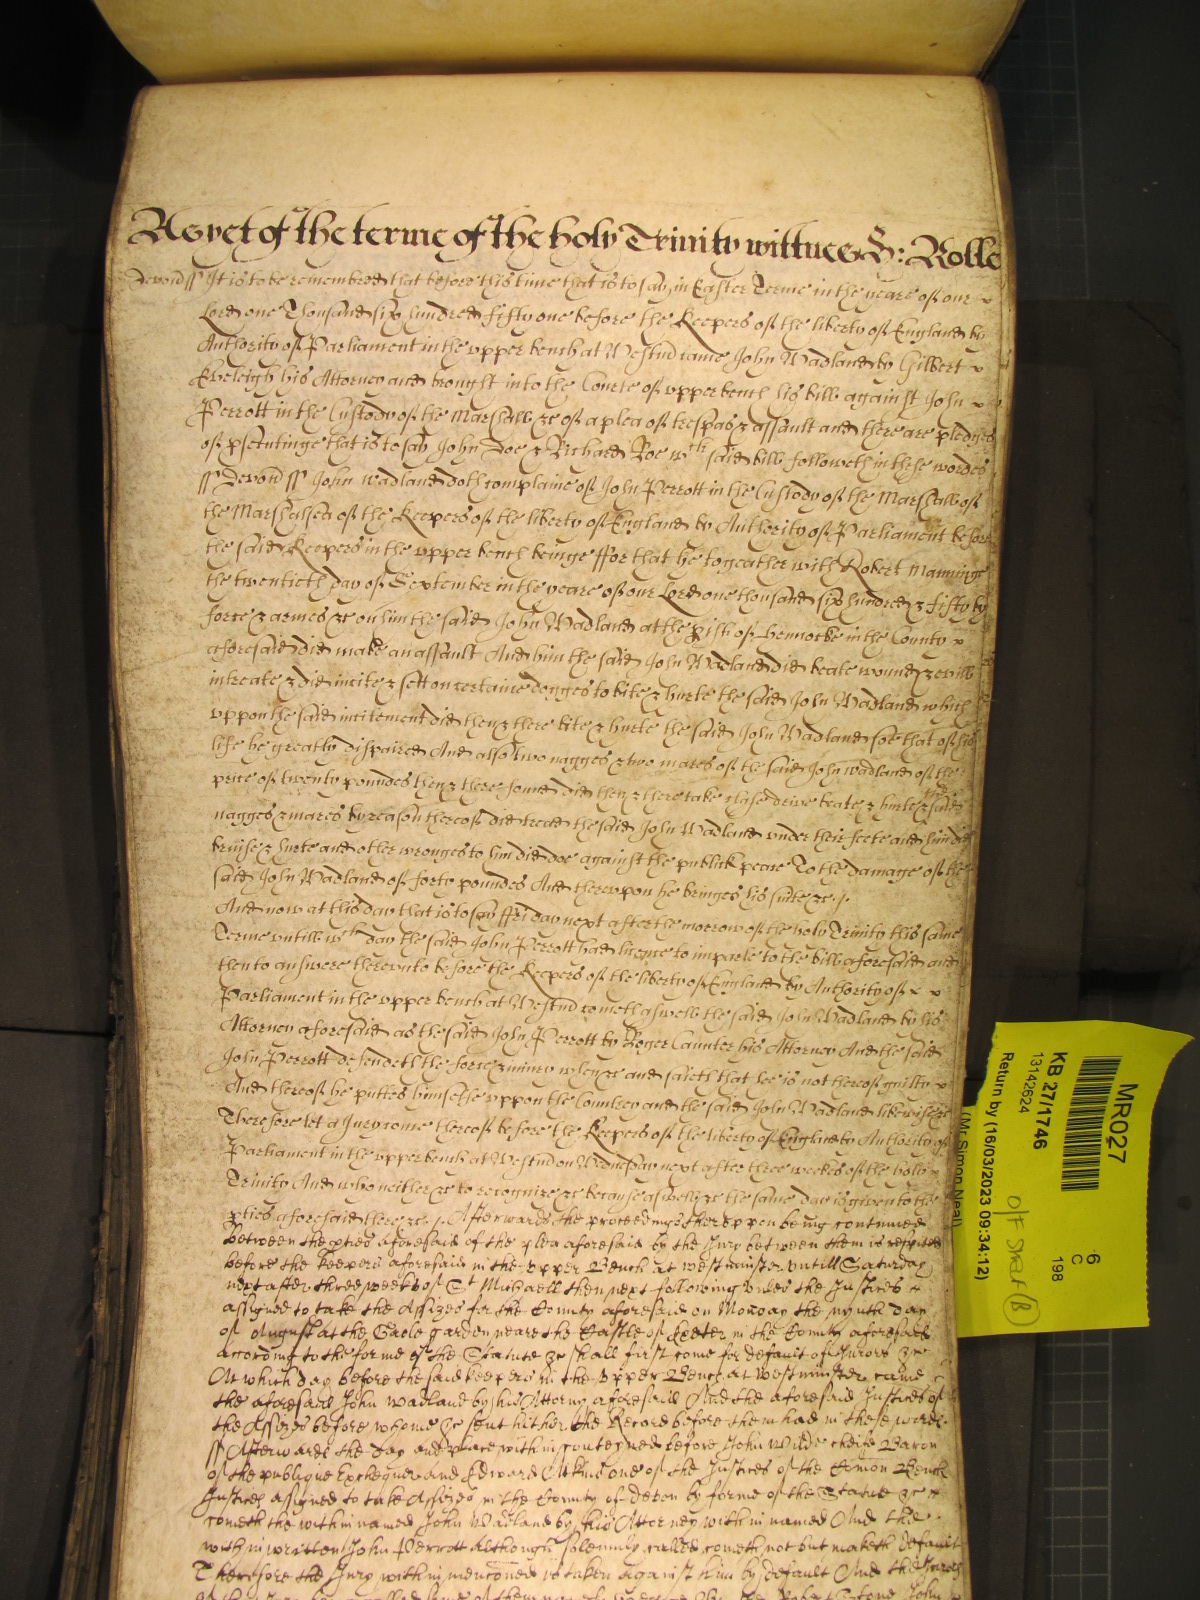 As yet of the terme of the holy Trinity wittnes H: Rolle
Devon ss It is to be remembred that before this time that is to say in Easter Terme in the yeare of our
Lord one Thousand six hundred fifty one before the Keepers of the liberty of England by
Authority of Parliament in the upper bench at Westm came John Wadland by Gilbert
Eveleigh his Attorney and brought into the Courte of upper bench his bill against John
Perrott in the Custody of the Marshall &c of a plea of trespas & assault and there are pledges
of psecutinge that is to say John Doe & Richard Roe wch said bill followeth in these wordes
ss Devon ss John Wadland doth complaine of John Perrott in the Custody of the Marshall of
the Marshalsea of the Keepers of the liberty of England by Authority of Parliament before
the said Keepers in the upper bench beinge ffor that he togeather with Robert Manninge
the twentieth day of September in the yeare of our Lord one thousand six hundred & fifty by
force & armes &c on him the said John Wadland at the pish of Hennocke in the County
aforesaid did make an assault And him the said John Wadland did beate wound & evill
intreate & did incite & sett on certaine dogges to bite & hurte the said John Wadland which
uppon the said incitement did then & there bite & hurte the said John Wadland soe that of his
life he greatly dispaired And also two nagges & two mares of the said John Wadland of the
price of twenty poundes then & there found did then & there take chase drive beate & hurte & the said
nagges & mares by reason thereof did tread the said John Wadland under their feete and him did
bruise & hurte and other wronges to him did doe against the publick peace To the damage of the
said John Wadland of forty poundes And thereupon he bringes his suite &c
And now at this day that is to say ffriday next after the morrow of the holy Trinity this same
Terme untill wch day the said John Perrott had licence to imparle to the bill aforesaid and
then to answere thereunto before the Keepers of the liberty of England by Authority of
Parliament in the upper bench at Westm cometh aswell the said John Wadland by his
Attorney aforesaid as the said John Perrott by Roger Caunter his Attorney And the said
John Perrott defendeth the force & iniury when &c and saieth that hee is not thereof guilty
And thereof he puttes himselfe uppon the Countrey and the said John Wadland likewise &c
Therefore let a Jury come thereof before the Keepers of the liberty of England by Authority of
Parliament in the upper bench at Westm on Wednesday next after three weekes of the holy
Trinity And who neither &c to recognize &c because aswell &c the same day is given to the
pties aforesaid there &c. Afterwards the proceedings thereuppon being continued
Betweene the pties aforesaid of the plea aforesaid by the Jury between them is respited
before the keepers aforesaid in the upper Bench at westminster untill Saturday
next after three weeks of St Michaell then next following unles the Justices
assigned to take the Assizes for the County aforesaid on Monday the nynth day
of August at the Gaole garden neare the Castle of Exeter in the County aforesaid
according to the forme of the Statute &c shall first come for default of Jurors &c
At which day before the said keepers in the upper Bench at Westminster came
the aforesaid John Wadland by his Attorny aforesaid And the aforesaid Justices of
the Assizes before whome &c sent hither the Record before them had in these words
ss Afterwards the day and place within conteyned before John Wilde cheife Baron
of the publique Exchequer and Edward Atkins one of the Justices of the Comon Bench
Justices assigned to take Assizes in the County of Devon by forme of the Statute &c
cometh the within named John Wadland by his Attorney within named And the
within written John Perrott Although solemnly called cometh not but maketh default
Therefore the Jury within mencioned is taken against him by default And the Jurors
MR027
KB 27/1746
13142624
Return by (16/03/2023 09:34:12)
(Mr Simon Neal)
6
C
198